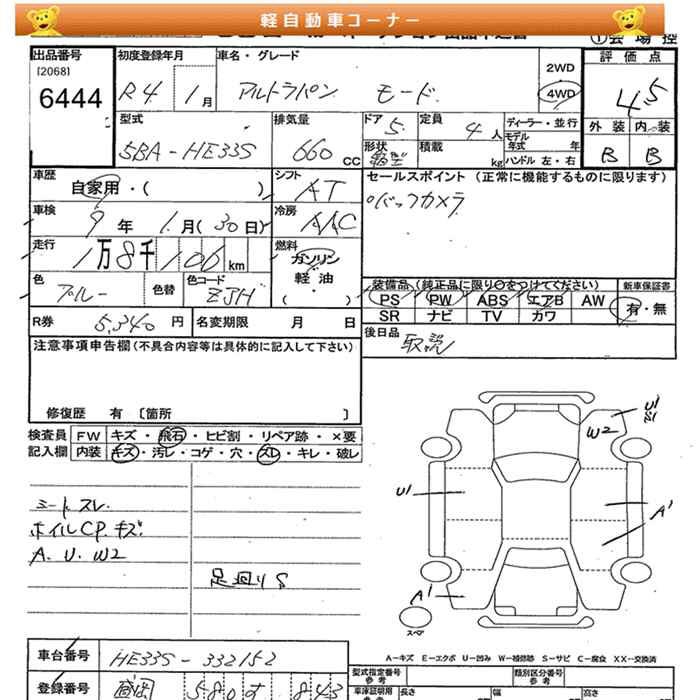 軽自動車コーナー
出品番号
[2068]
6444
初度登録年月
R4 1月
車名・グレード
アルトラパン モード
2WD
4WD
評価点
4.5
外装 内装
B B
型式
5BA-HE33S
排気量
660 CC
ドア 5
形状
定員 4人
積載 kg
ディーラー・並行
モデル年式 年
ハンドル 左・右
車歴
自家用・( )
シフト
AT
車検
9年 1月(30日)
冷房
AAC
セールスポイント(正常に機能するものに限ります)
バックカメラ
走行
1万8千106km
燃料
ガソリン
軽油
( )
色
ブルー
色替
色コード
ZJH
装備品(純正品に限り○をつけてください)
PS PW ABS エアB AW
SR ナビ TV カワ
新車保証書
有・無
R券 5,340円
名変期限 月 日
後日品
取説
注意事項申告欄(不具合内容等は具体的に記入して下さい)
修復歴 有 〔箇所 〕
検査員
記入欄
FW キズ・飛石・ヒビ割・リペア跡・×要
内装 キズ・汚レ・コゲ・穴・スレ・キレ・破レ
シートスレ
ホイルCP.キズ
A. U. W2
足廻りS
U1
S1
W2
U1
A1
A1
スペア
A-キズ E-エクボ U-凹み W-補修跡 S-サビ C-腐食 XX-交換済
車台番号
HE33S-332152
登録番号
盛岡 580 843
型式指定番号
参考
類別区分番号
参考
車庫証明用
参考
長さ
幅
高さ